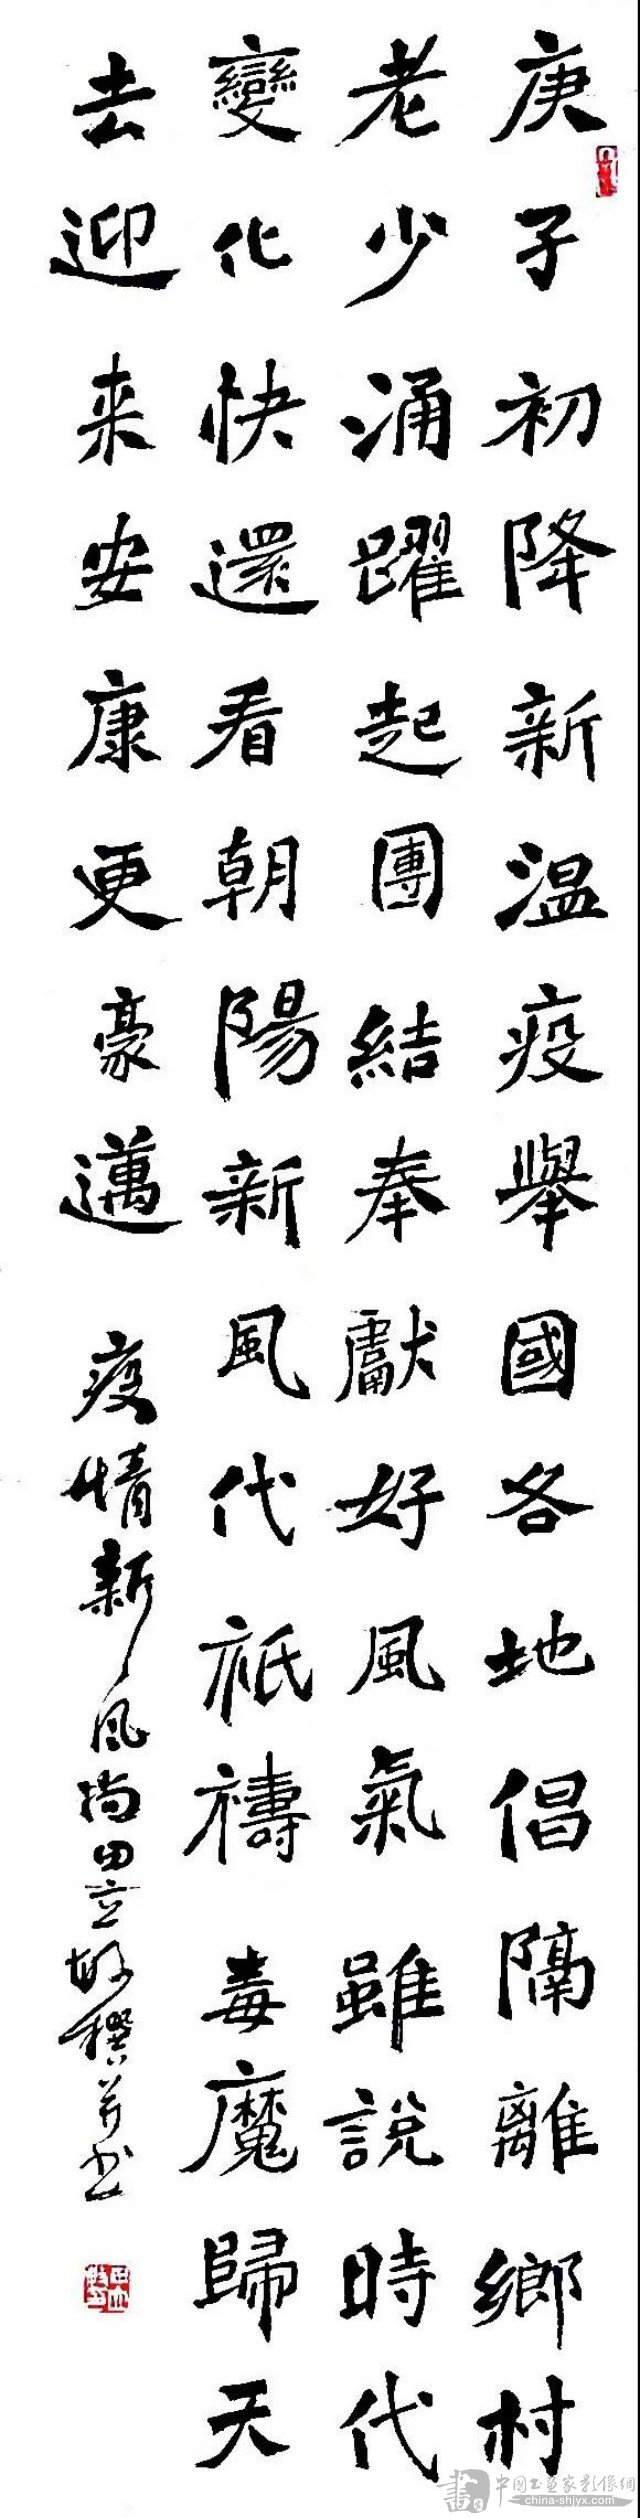 庚子初降新温疫舉國各地倡隔離鄉村
老少涌躍起團結奉獻好風氣雖説時代
變化快還看朝陽新風代祇禱毒魔歸天
去迎来安康更豪邁
疫情新风尚田立 撰并书
書 中國书画家影像網
china-shjyx.com